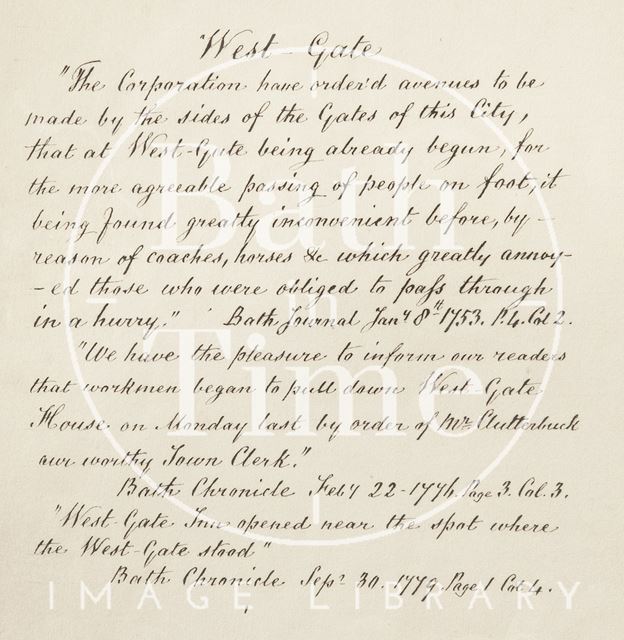 West-Gate
"The Corporation have order'd avenues to be
made by the sides of the Gates of this City,
that at West-Gate being already begun, for
the more agreeable passing of people on foot, it
being found greatly inconvenient before, by-
reason of coaches, horses &c which greatly annoy-
-ed those who were obliged to pass through
in a hurry." Bath Journal Jany 8th 1753. P.4. Col 2.
"We have the pleasure to inform our readers
that workmen began to pull down West-Gate
House on Monday last by order of Mr. Clutterbuck
our worthy Town Clerk."
Bath Chronicle Feby 22-1776. Page 3. Col. 3.
"West-Gate Inn opened near the spot where
the West-Gate stood"
Bath Chronicle Sepr 30. 1779. Page 1 Col 4.
Bath
in
Time
IMAGE LIBRARY